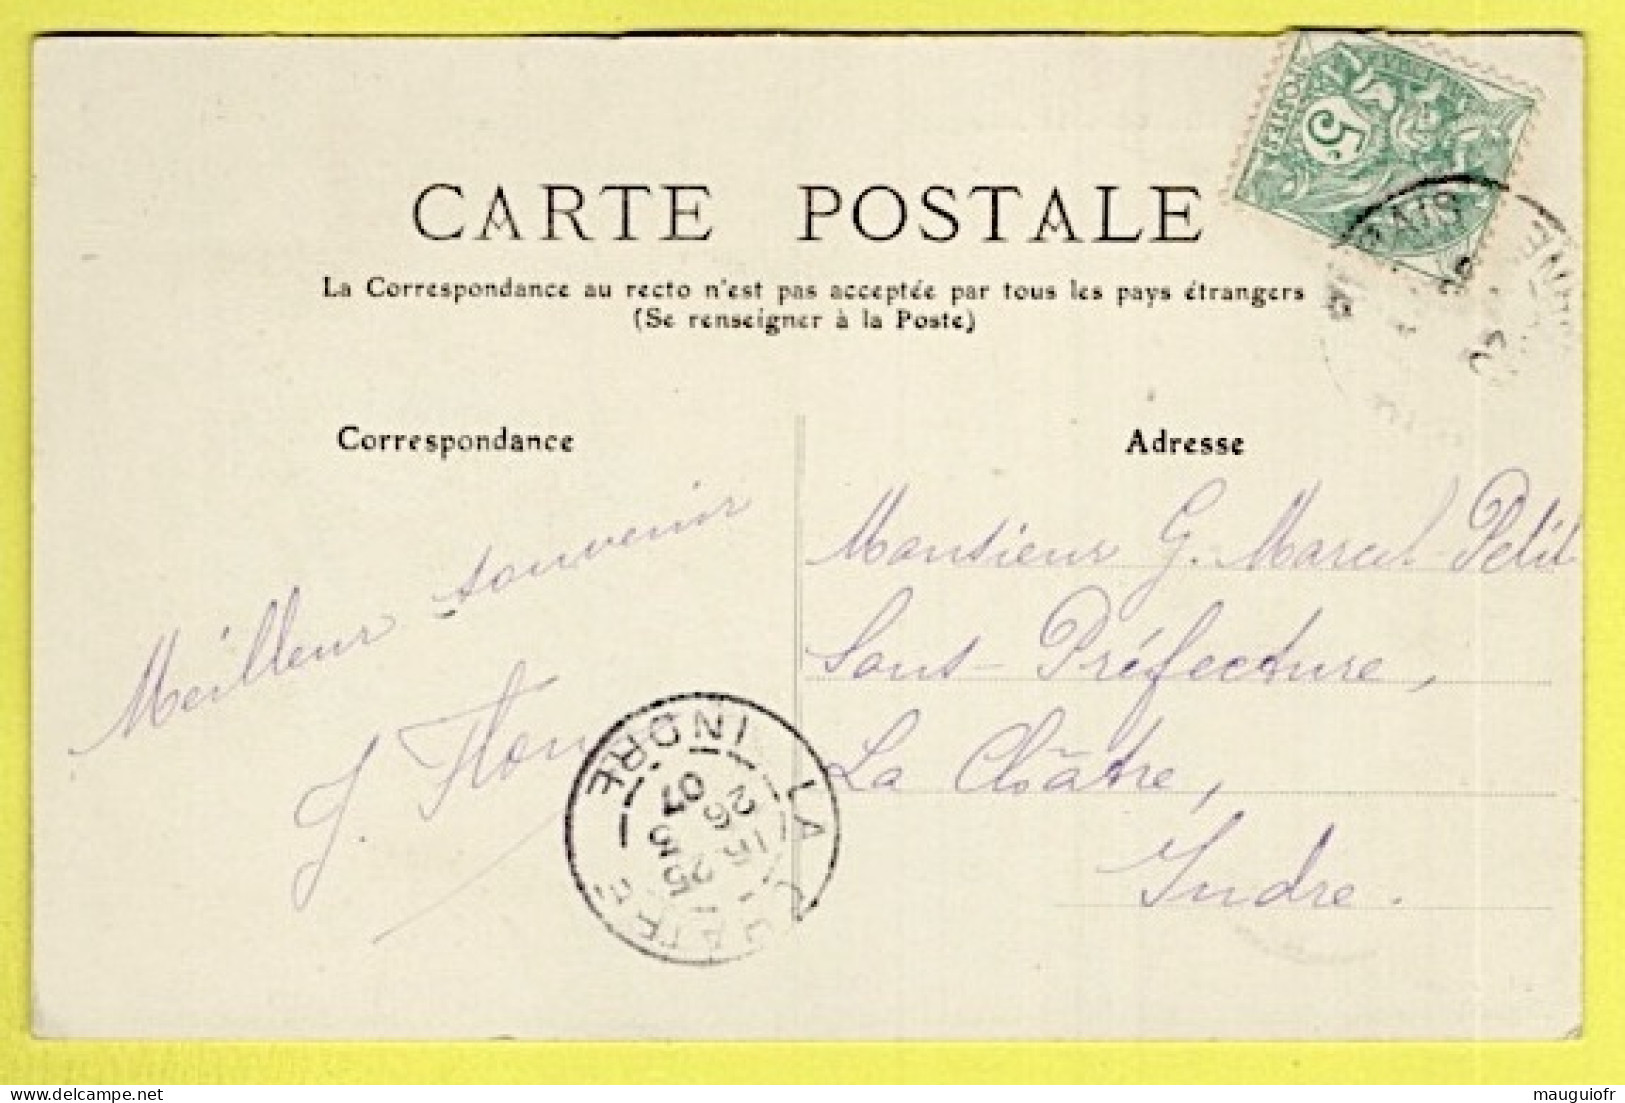 CARTE POSTALE
La Correspondance au recto n'est pas acceptée par tous les pays étrangers
(Se renseigner à la Poste)
POSTES
5c
Correspondance
Meilleur souvenir
Adresse
Monsieur G. Marcel Petit
Sous-Préfecture,
La Châtre,
Indre.
LA CHATRE
INDRE
25
3
07
mauguiofr